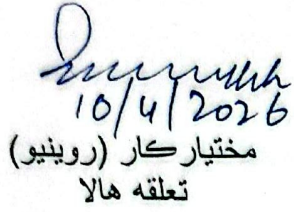 10/4/2026
مختيارڪار (روينيو)
تعلقه هالا